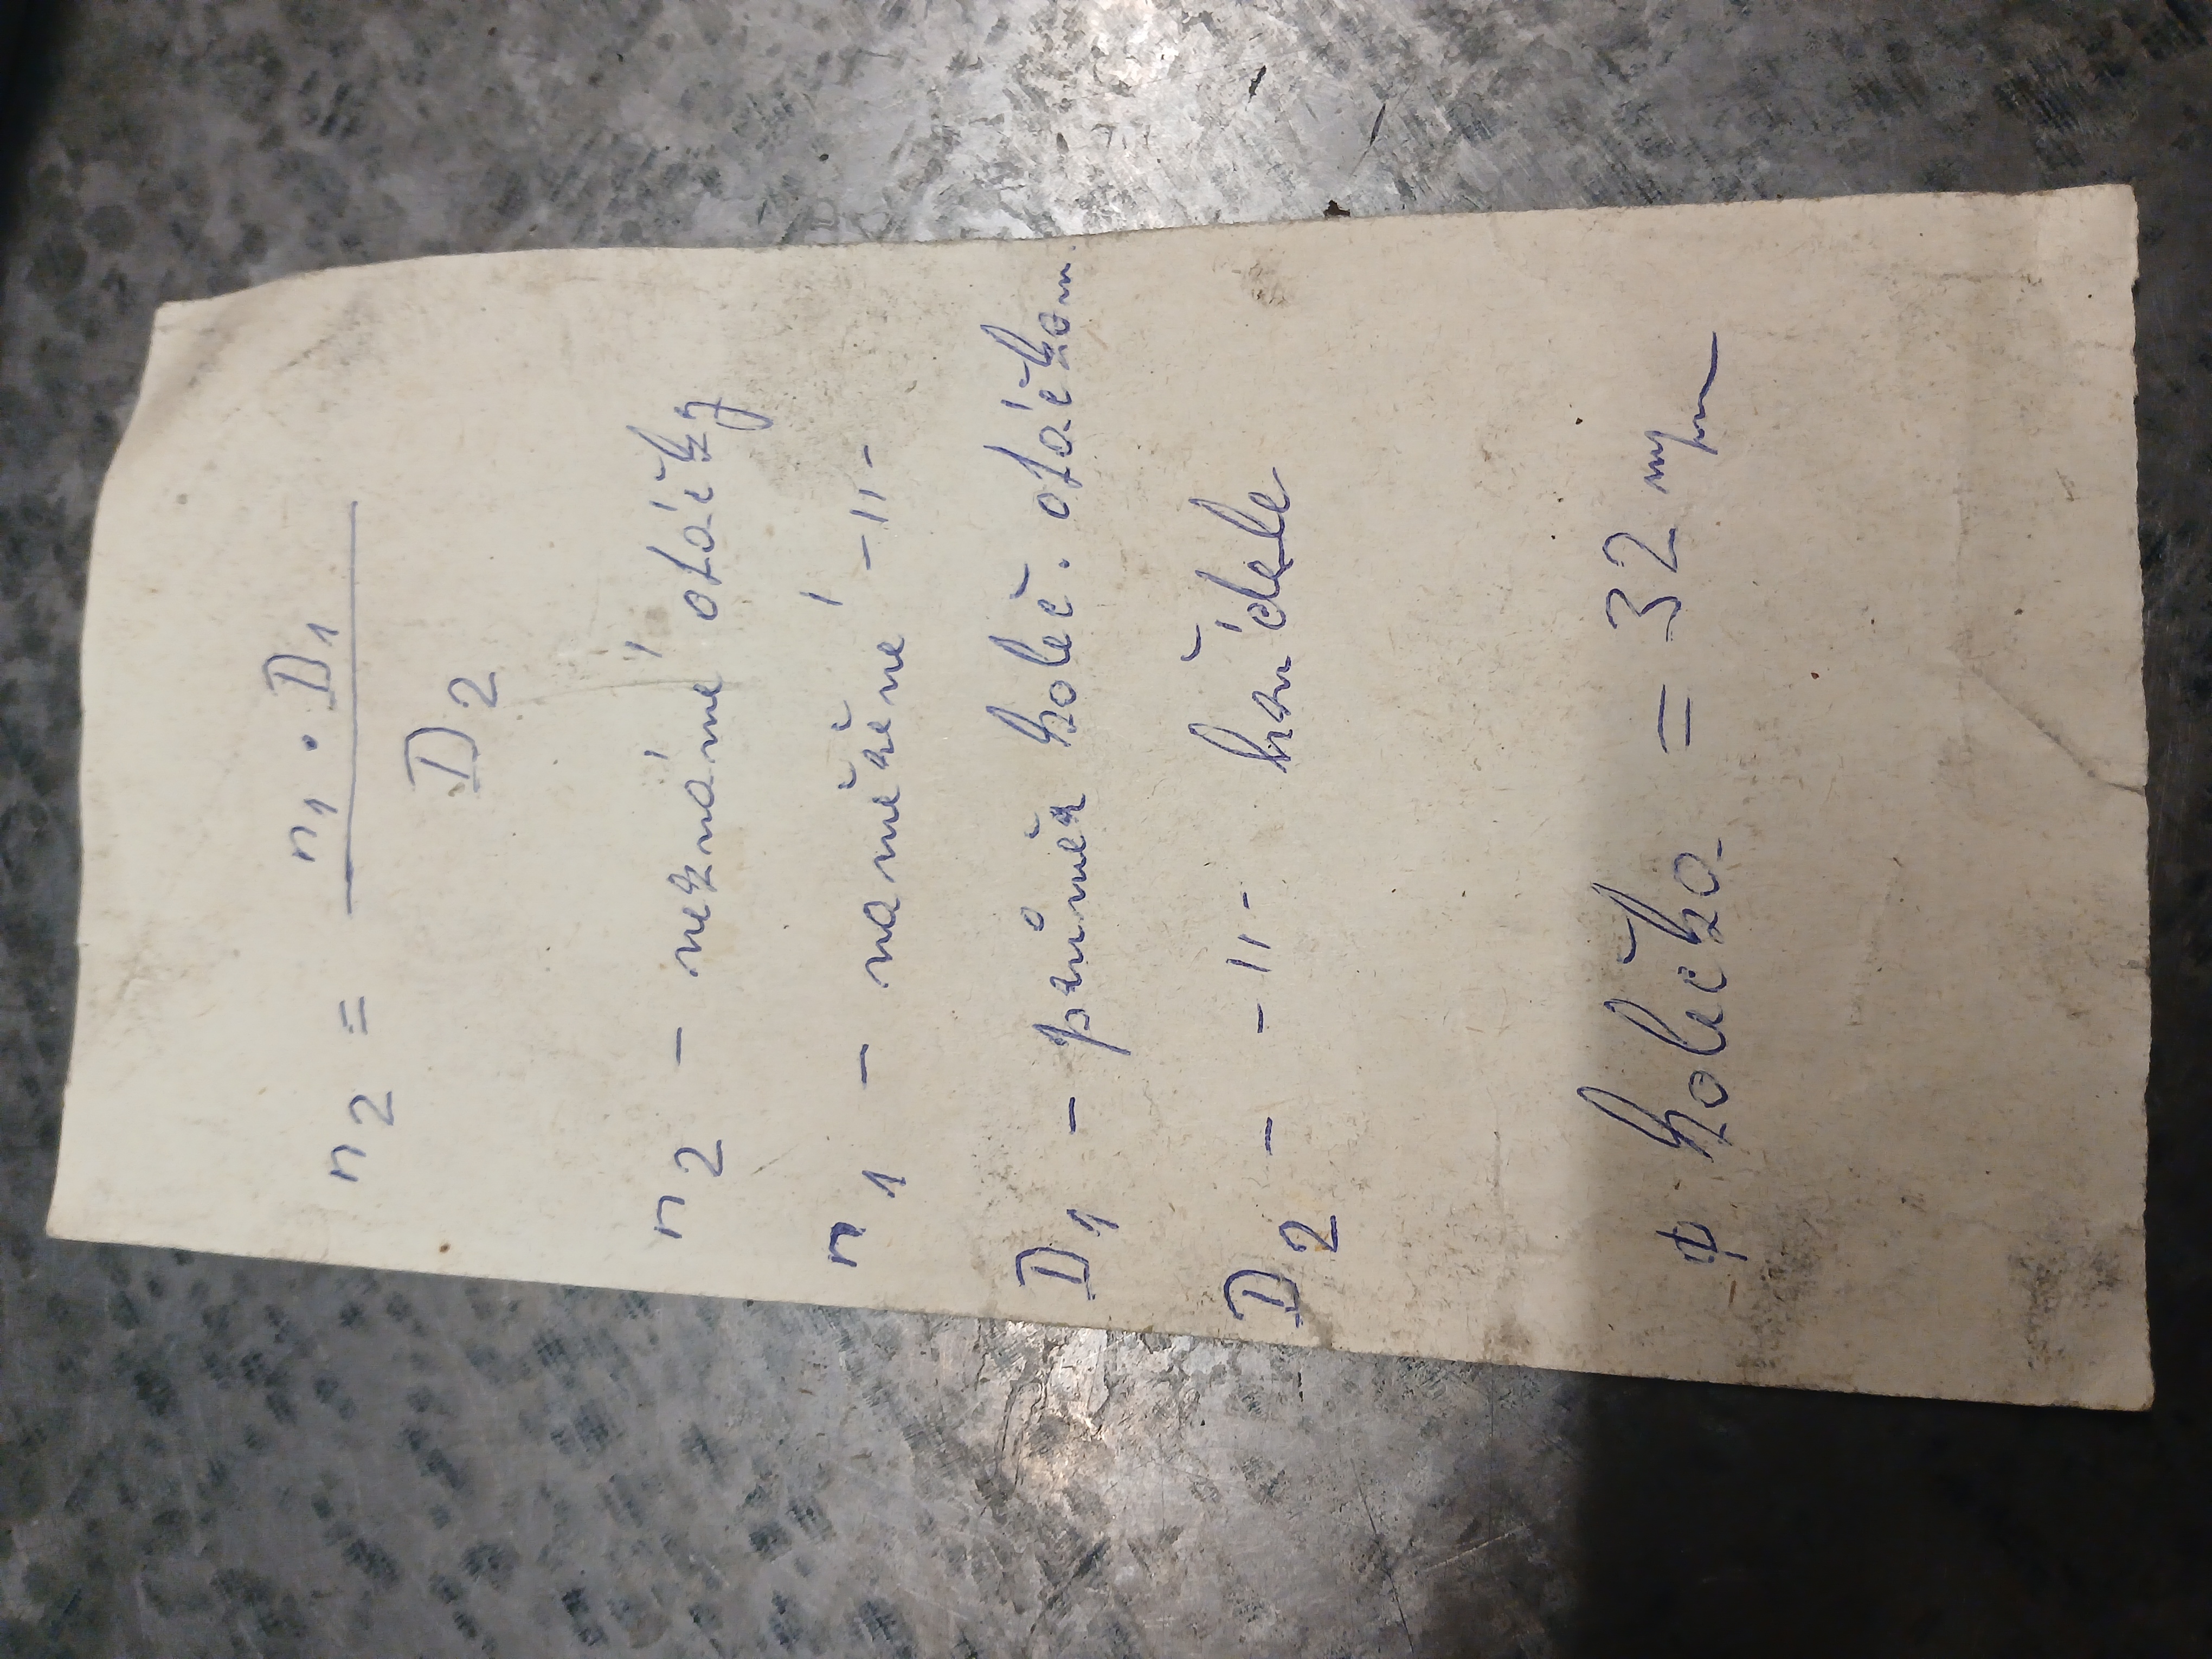 n2 = n1 · D1
D2
n2 – neznámé otáčky
n1 – naměřené -||-
D1 – průměr koleč. otáčkom.
D2 – -||- hřídele
φ kolečka = 32 mm